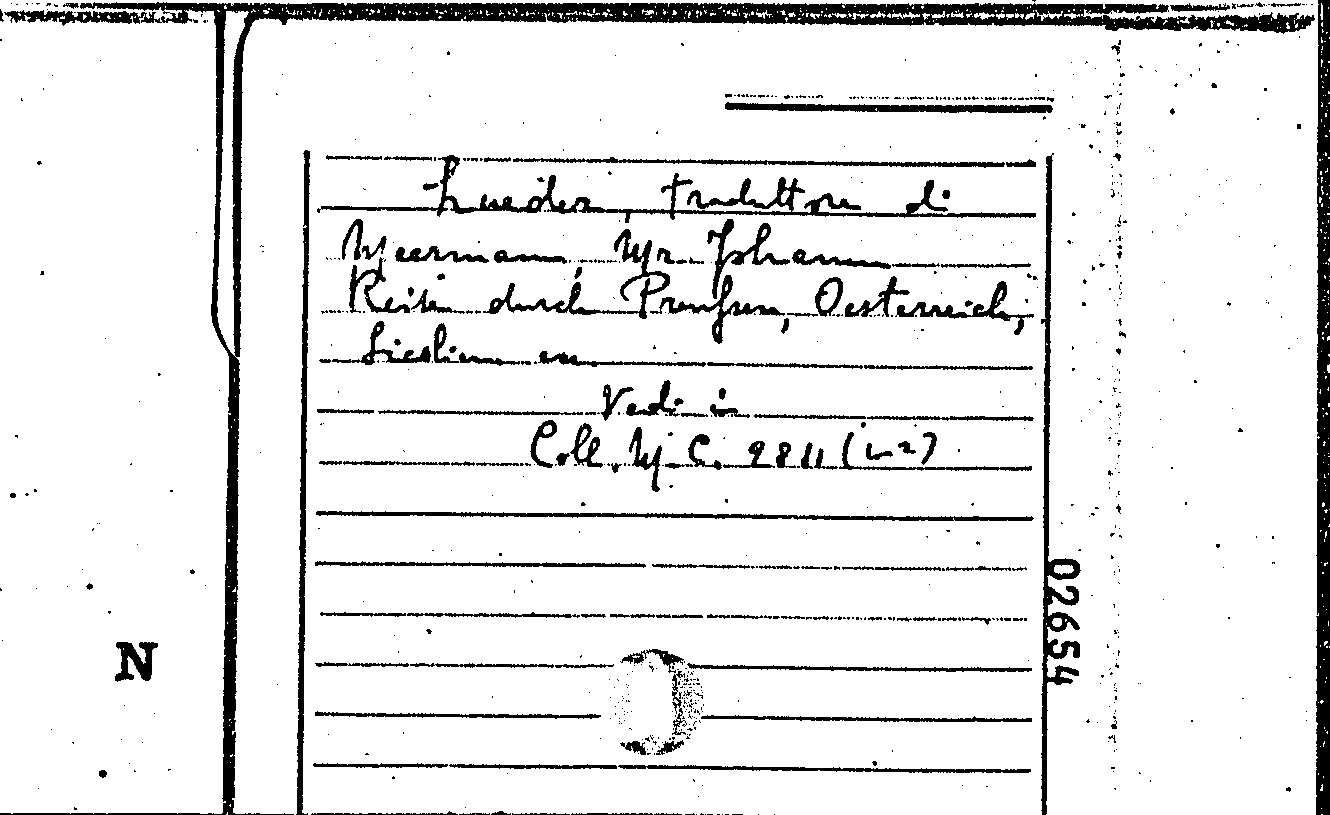 Lueder, traduttore di
Meermann, Mr. Johann
Reisen durch Preußen, Oesterreich,
Sicilien
Vedi in
Coll. M. C. 9811 (1-2)
02654
N